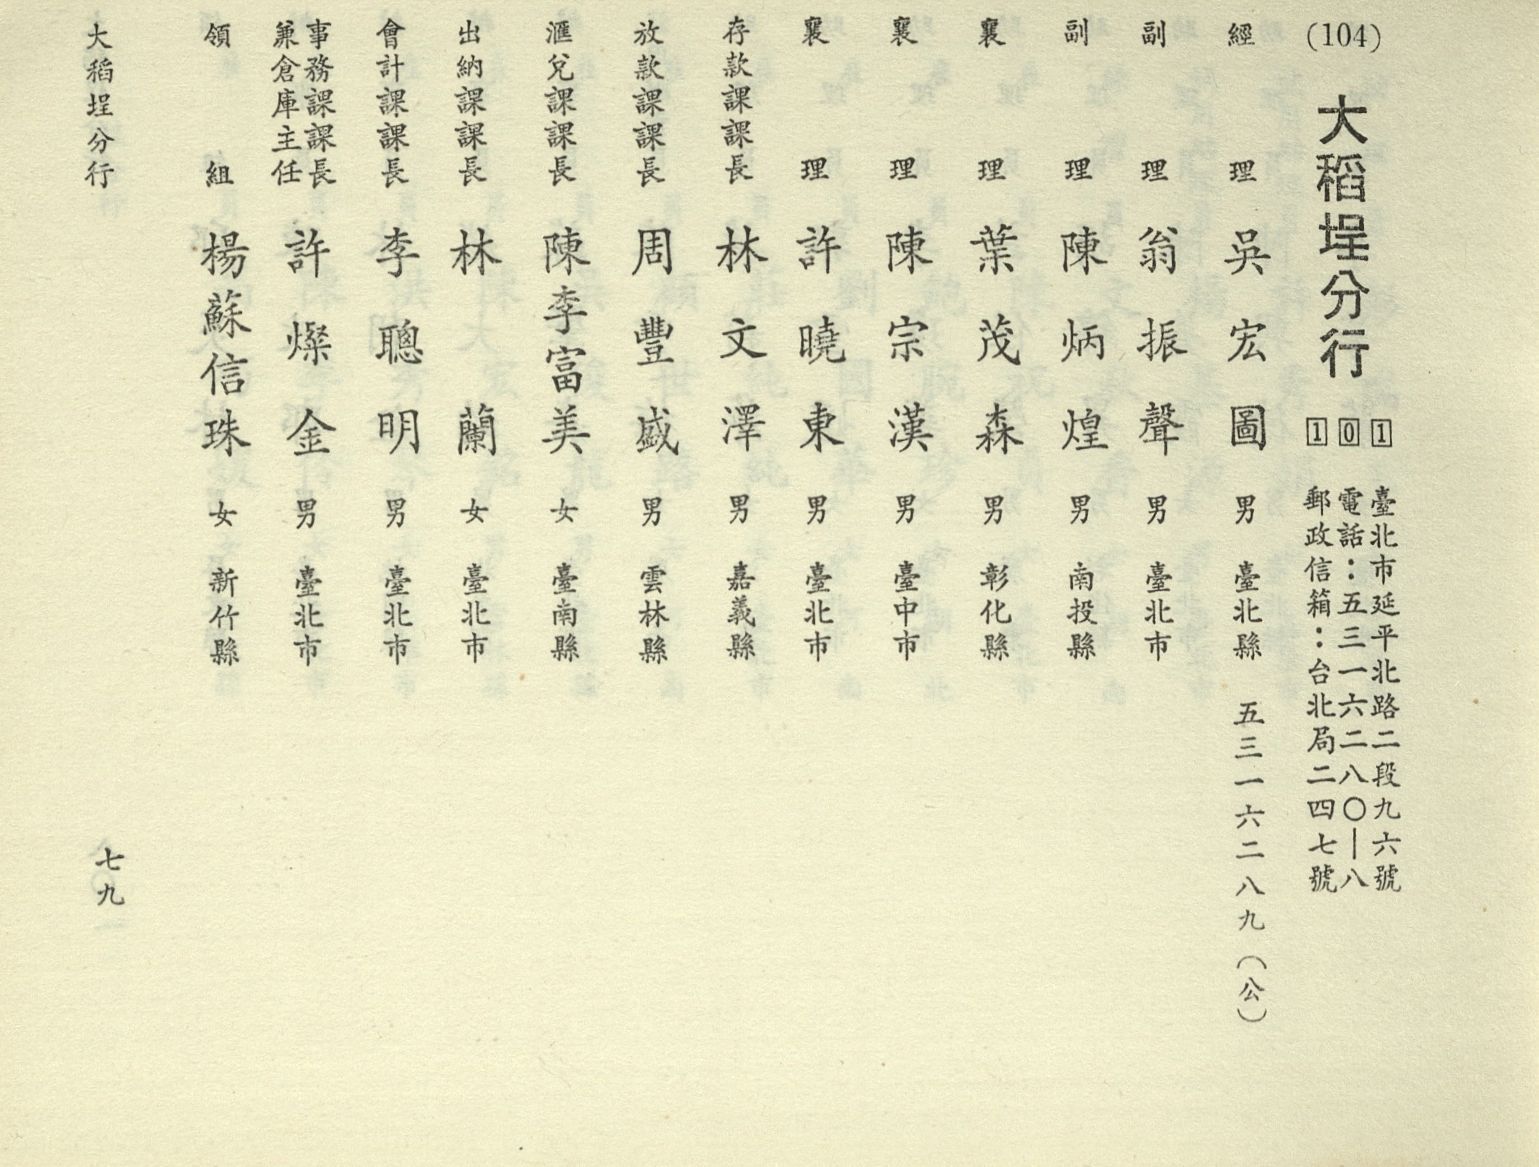 (104)
大稻埕分行
101
臺北市延平北路二段九六號
電話：五三一六二八〇｜八
郵政信箱：台北局二四七號
經理 吳宏圖 男 臺北縣 五三一六二八九（公）
副理 翁振聲 男 臺北市
副理 陳炳煌 男 南投縣
襄理 葉茂森 男 彰化縣
襄理 陳宗漢 男 臺中市
襄理 許曉東 男 臺北市
存款課課長 林文澤 男 嘉義縣
放款課課長 周豐盛 男 雲林縣
滙兌課課長 陳李富美 女 臺南縣
出納課課長 林蘭 女 臺北市
會計課課長 李聰明 男 臺北市
事務課課長兼倉庫主任 許燦金 男 臺北市
領組 楊蘇信珠 女 新竹縣
大稻埕分行
七九